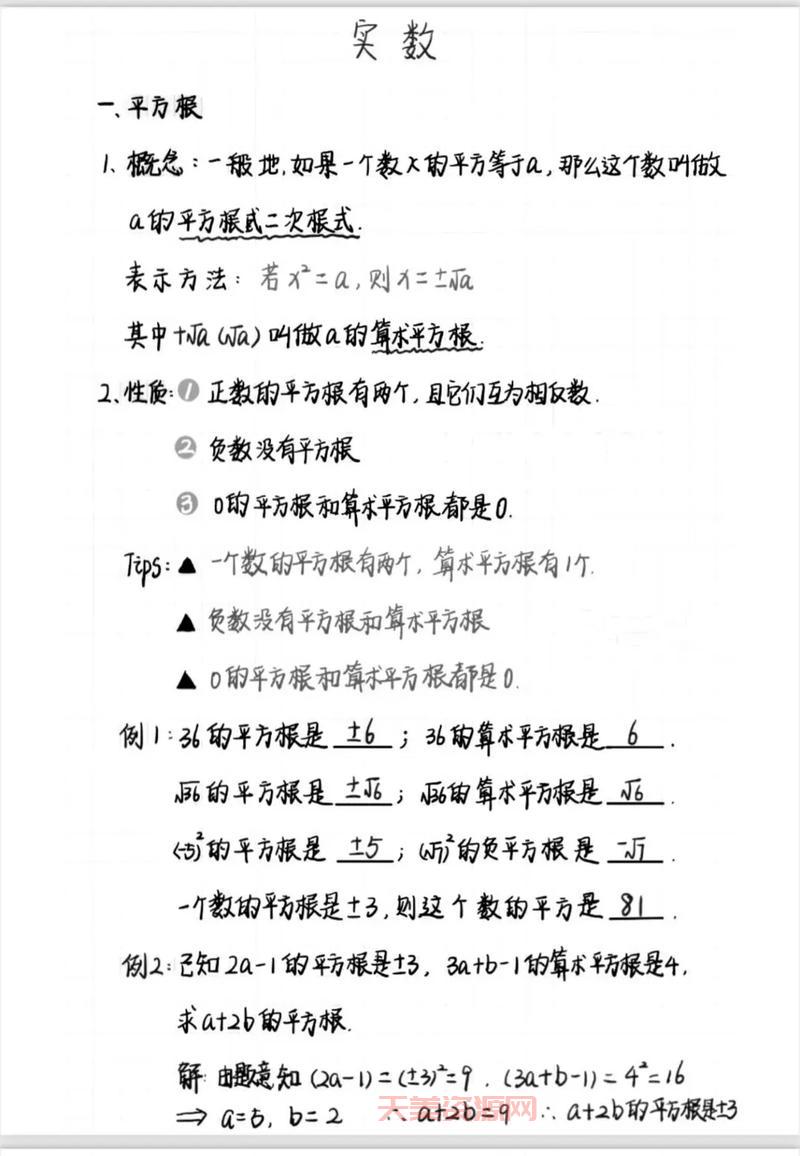 实数
一、平方根
1、概念：一般地，如果一个数x的平方等于a，那么这个数叫做
a的平方根或二次根式.
表示方法：若x²=a，则x=±√a
其中+√a(√a)叫做a的算术平方根.
2、性质：① 正数的平方根有两个，且它们互为相反数.
② 负数没有平方根
③ 0的平方根和算术平方根都是0.
Tips：▲ 一个数的平方根有两个，算术平方根有1个.
▲ 负数没有平方根和算术平方根
▲ 0的平方根和算术平方根都是0.
例1：36的平方根是 ±6 ；36的算术平方根是 6 .
√36的平方根是 ±√6 ；√36的算术平方根是 √6 .
(-5)²的平方根是 ±5 ；(√7)²的负平方根是 -√7 .
一个数的平方根是±3，则这个数的平方是 81 .
例2：已知2a-1的平方根是±3，3a+b-1的算术平方根是4，
求a+2b的平方根.
解：由题意知(2a-1)=(±3)²=9，(3a+b-1)=4²=16
⇒ a=5，b=2 ∴a+2b=9 ∴a+2b的平方根是±3
天美资源网